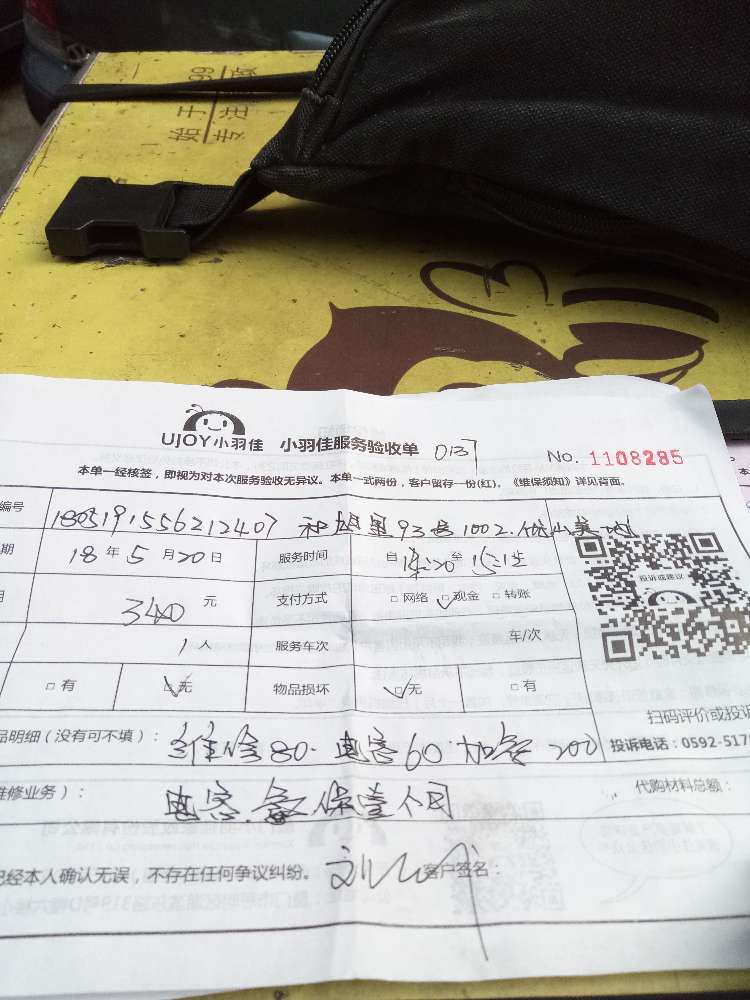 始于99
专注
UJOY小羽佳 小羽佳服务验收单 013
No. 1108285
本单一经核签，即视为对本次服务验收无异议。本单一式两份，客户留存一份(红)。《维保须知》详见背面。
编号 1805191556212407 93号1002.
期 18年5月20日 服务时间 自 至
340元 支付方式 □网络 ☑现金 □转账
1人 服务车次 车/次
□有 ☑无 物品损坏 ☑无 □有
投诉或建议
扫码评价或投诉
投诉电话：0592-517
品明细（没有可不填）： 维修80. 电容60 加氨200
代购材料总额：
维修业务）： 电容. 保 个月
已经本人确认无误，不存在任何争议纠纷。 客户签名：